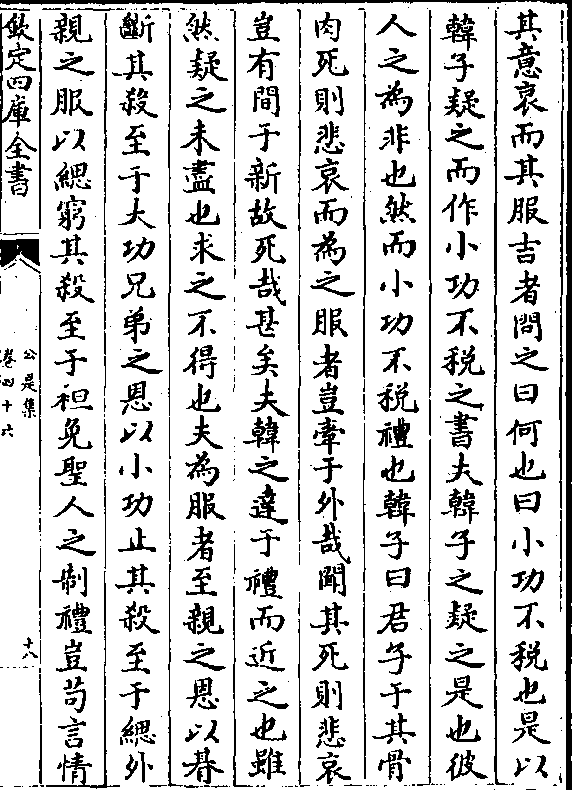 其意哀而其服吉者問之曰何也曰小功不税也是以
韓子疑之而作小功不税之書夫韓子之疑之是也彼
人之為非也然而小功不税禮也韓子曰君子于其骨
肉死則悲哀而為之服者豈牽于外哉聞其死則悲哀
豈有間于新故死哉甚矣夫韓之達于禮而近之也雖
然疑之未盡也求之不得也夫為服者至親之恩以朞
斷其殺至于大功兄弟之恩以小功止其殺至于緦外
親之服以緦窮其殺至于袒免聖人之制禮豈苟言情
欽定四庫全書
公是集
卷四十六
十八